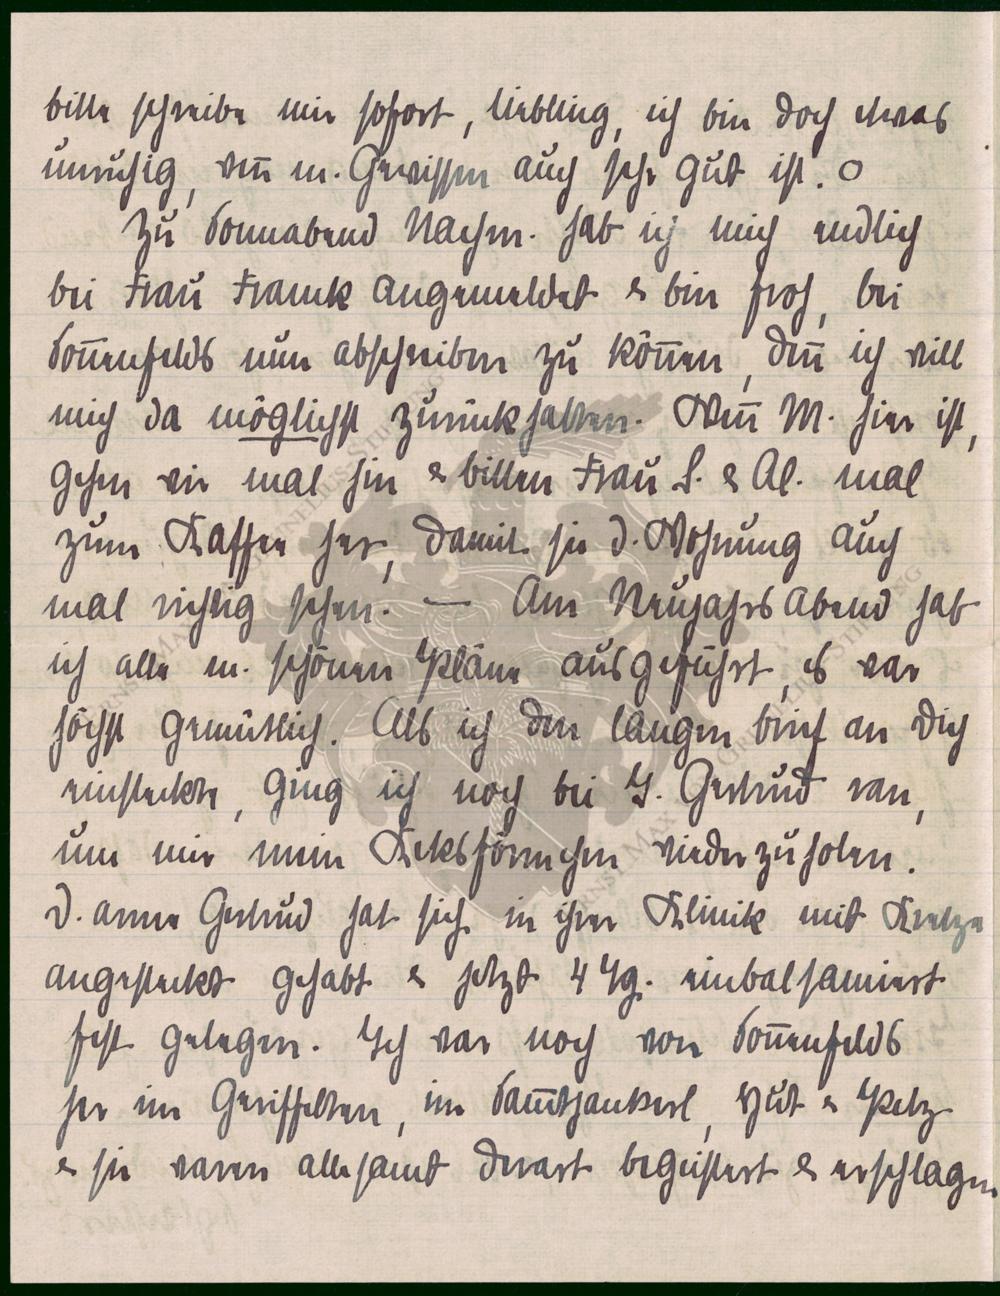 bitte schreibe mir sofort, Liebling, ich bin doch etwas
unruhig, wenn m. Gewissen auch sehr gut ist. O
Zu Sonnabend Nachm. hab ich mich endlich
bei Frau Franck angemeldet & bin froh, bei
Sonnenfelds nun abschreiben zu können, denn ich will
mich da möglichst zurückhalten. Wenn M. hier ist,
gehen wir mal hin & bitten Frau S. & Al. mal
zum Kaffee her, damit sie d. Wohnung auch
mal richtig sehen. — Am Neujahrsabend hab
ich alle m. schönen Pläne ausgeführt, es war
höchst gemütlich. Als ich den langen Brief an Dich
einsteckte, ging ich noch bei J. Gertrud ran,
um mir mein Keksförmchen wiederzuholen.
D. arme Gertrud hat sich in ihrer Klinik mit Krätze
angesteckt gehabt & jetzt 4 Tg. einbalsamiert
fest gelegen. Ich war noch von Sonnenfelds
her im Geriffelten, im Samtjankerl, Hut & Pelz
& sie waren allesamt derart begeistert & erschlagen